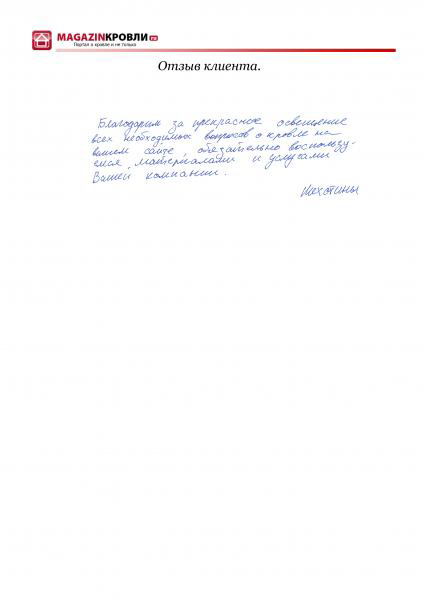 MAGAZINКРОВЛИ.ru
Портал о кровле и не только
Отзыв клиента.
Благодарим за прекрасное освещение
всех необходимых вопросов о кровле на
вашем сайте, обязательно воспользу-
емся материалами и услугами
Вашей компании.